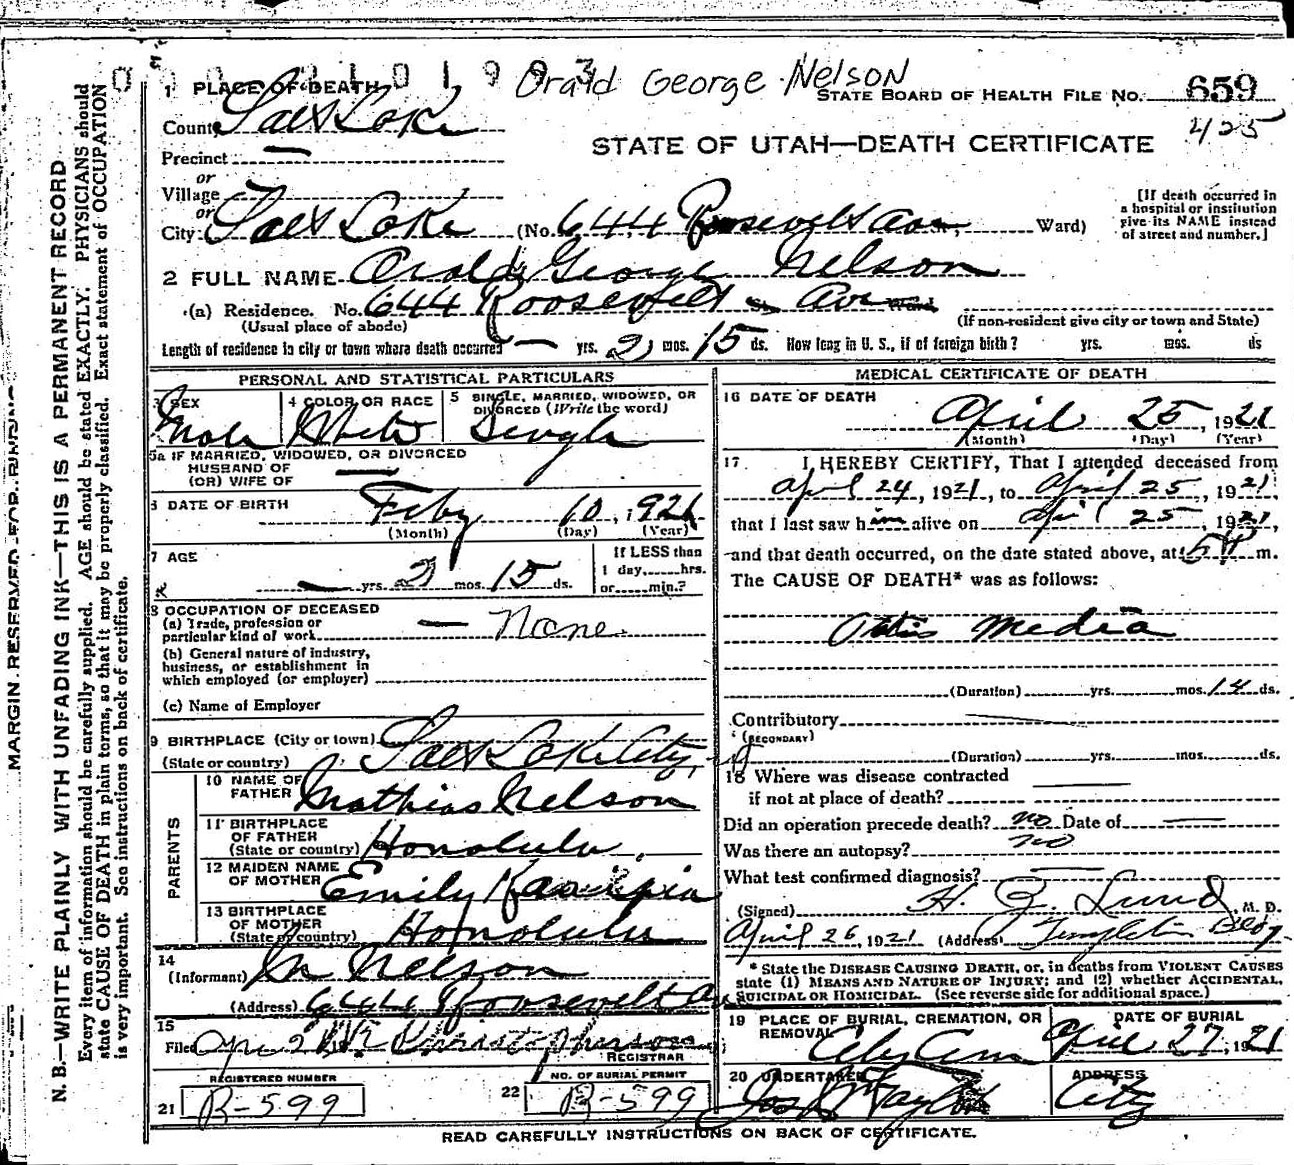 Orald George Nelson
1 PLACE OF DEATH
STATE BOARD OF HEALTH FILE NO. 659
County Salt Lake
425
STATE OF UTAH—DEATH CERTIFICATE
Precinct —
or
Village
or
City Salt Lake (No. 644 Roosevelt Ave, Ward)
[If death occurred in
a hospital or institution
give its NAME instead
of street and number.]
2 FULL NAME Orald George Nelson
(a) Residence. No. 644 Roosevelt St. Ave Ward
(Usual place of abode)
(If non-resident give city or town and State)
Length of residence in city or town where death occurred — yrs. 2 mos. 15 ds. How long in U. S., if of foreign birth? yrs. mos. ds
PERSONAL AND STATISTICAL PARTICULARS
3 SEX
Male
4 COLOR OR RACE
White
5 SINGLE, MARRIED, WIDOWED, OR
DIVORCED (Write the word)
Single
5a IF MARRIED, WIDOWED, OR DIVORCED
HUSBAND OF
(OR) WIFE OF —
6 DATE OF BIRTH Feby 10, 1921
(Month) (Day) (Year)
7 AGE
— yrs. 2 mos. 15 ds.
If LESS than
1 day,......hrs.
or......min.?
8 OCCUPATION OF DECEASED
(a) Trade, profession or
particular kind of work — None
(b) General nature of industry,
business, or establishment in
which employed (or employer)
(c) Name of Employer
9 BIRTHPLACE (City or town) Salt Lake City
(State or country)
PARENTS
10 NAME OF
FATHER Mathias Nelson
11 BIRTHPLACE
OF FATHER
(State or country) Honolulu
12 MAIDEN NAME
OF MOTHER Emily
13 BIRTHPLACE
OF MOTHER
(State or country) Honolulu
14
(Informant) M Nelson
(Address) 644 Roosevelt Ave
15
Filed Christopherson
REGISTRAR
REGISTERED NUMBER
21 B-599
NO. OF BURIAL PERMIT
22 B-599
MEDICAL CERTIFICATE OF DEATH
16 DATE OF DEATH
April 25, 1921
(Month) (Day) (Year)
17 I HEREBY CERTIFY, That I attended deceased from
April 24, 1921, to April 25, 1921,
that I last saw him alive on April 25, 1921,
and that death occurred, on the date stated above, at 5 P m.
The CAUSE OF DEATH* was as follows:
Otitis Media
(Duration) yrs. mos. 14 ds.
Contributory
(SECONDARY)
(Duration) yrs. mos. ds.
18 Where was disease contracted
if not at place of death?
Did an operation precede death? no Date of —
Was there an autopsy? no
What test confirmed diagnosis? —
(Signed) H. Z. Lund, M. D.
April 26, 1921 (Address) Templeton Bldg.
* State the DISEASE CAUSING DEATH, or, in deaths from VIOLENT CAUSES
state (1) MEANS AND NATURE OF INJURY; and (2) whether ACCIDENTAL,
SUICIDAL OR HOMICIDAL. (See reverse side for additional space.)
19 PLACE OF BURIAL, CREMATION, OR
REMOVAL City Cem
DATE OF BURIAL
April 27, 1921
20 UNDERTAKER
Jos Taylor
ADDRESS
City
READ CAREFULLY INSTRUCTIONS ON BACK OF CERTIFICATE.
MARGIN RESERVED FOR BINDING
N. B.—WRITE PLAINLY WITH UNFADING INK—THIS IS A PERMANENT RECORD
Every item of information should be carefully supplied. AGE should be stated EXACTLY. PHYSICIANS should
state CAUSE OF DEATH in plain terms, so that it may be properly classified. Exact statement of OCCUPATION
is very important. See instructions on back of certificate.